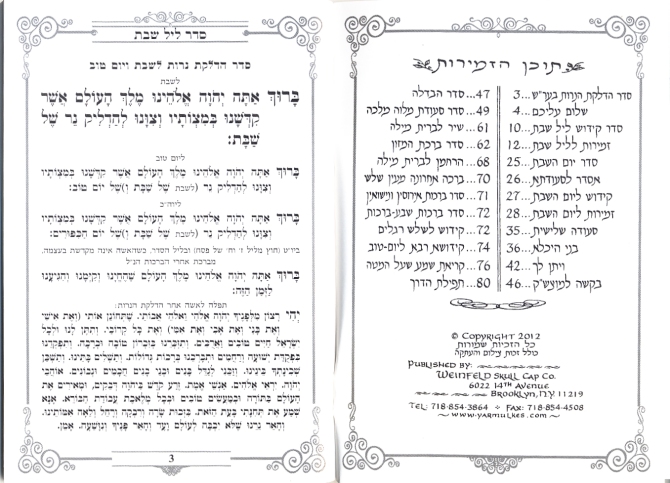 תוכן הזמירות
סדר הדלקת הנרות בער"ש...3
שלום עליכם...4
סדר קידוש ליל שבת...10
זמירות לליל שבת...12
סדר יום השבת...25
אסדר לסעודתא...26
קידוש ליום השבת...27
זמירות ליום השבת...28
סעודה שלישית...35
בני היכלא...36
ויתן לך...42
בקשה למוצש"ק...46
47...סדר הבדלה
49...סדר סעודת מלוה מלכה
61...שיר לברית מילה
62...סדר ברכת המזון
68...הרחמן לברית מילה
70...ברכה אחרונה מעין שלש
71...סדר ברכות אירוסין ונישואין
72...סדר ברכות שבע-ברכות
72...קידוש לשלש רגלים
74...קידושא רבא ליום-טוב
76...קריאת שמע שעל המטה
80...תפילת הדרך
© Copyright 2012
כל הזכיות שמורות
כולל זכות צילום והעתקה
Published by:
Weinfeld Skull Cap Co.
6022 14th Avenue
Brooklyn, N.Y. 11219
Tel: 718-854-3864 ✦ Fax: 718-854-4508
~ www.yarmulkes.com ~
סדר ליל שבת
סדר הדלקת נרות לשבת ויום טוב
לשבת
בָּרוּךְ אַתָּה יְהֹוָה אֱלֹהֵינוּ מֶלֶךְ הָעוֹלָם אֲשֶׁר
קִדְּשָׁנוּ בְּמִצְוֹתָיו וְצִוָּנוּ לְהַדְלִיק נֵר שֶׁל
שַׁבָּת:
ליום טוב
בָּרוּךְ אַתָּה יְהֹוָה אֱלֹהֵינוּ מֶלֶךְ הָעוֹלָם אֲשֶׁר קִדְּשָׁנוּ בְּמִצְוֹתָיו
וְצִוָּנוּ לְהַדְלִיק נֵר (לשבת שֶׁל שַׁבָּת וְ)שֶׁל יוֹם טוֹב:
ליוה"כ
בָּרוּךְ אַתָּה יְהֹוָה אֱלֹהֵינוּ מֶלֶךְ הָעוֹלָם אֲשֶׁר קִדְּשָׁנוּ בְּמִצְוֹתָיו
וְצִוָּנוּ לְהַדְלִיק נֵר (לשבת שֶׁל שַׁבָּת וְ)שֶׁל יוֹם הַכִּפּוּרִים:
ביו"ט (חוץ מליל ז' וח' של פסח) ובליל הסדר, כשהאשה אינה מקדשת בעצמה,
מברכת אחרי הברכות הנ"ל
בָּרוּךְ אַתָּה יְהֹוָה אֱלֹהֵינוּ מֶלֶךְ הָעוֹלָם שֶׁהֶחֱיָנוּ וְקִיְּמָנוּ וְהִגִּיעָנוּ
לַזְּמַן הַזֶּה:
תפלה לאשה אחר הדלקת הנרות:
יְהִי רָצוֹן מִלְּפָנֶיךָ יְהֹוָה אֱלֹהַי וֵאלֹהֵי אֲבוֹתַי, שֶׁתְּחוֹנֵן אוֹתִי (וְאֶת אִישִׁי
וְאֶת בָּנַי וְאֶת אָבִי וְאֶת אִמִּי) וְאֶת כָּל קְרוֹבַי, וְתִתֶּן לָנוּ וּלְכָל
יִשְׂרָאֵל חַיִּים טוֹבִים וַאֲרֻכִּים, וְתִזְכְּרֵנוּ בְּזִכְרוֹן טוֹבָה וּבְרָכָה, וְתִפְקְדֵנוּ
בִּפְקֻדַּת יְשׁוּעָה וְרַחֲמִים וּתְבָרְכֵנוּ בְּרָכוֹת גְּדוֹלוֹת, וְתַשְׁלִים בָּתֵּינוּ, וְתַשְׁכֵּן
שְׁכִינָתְךָ בֵּינֵינוּ, וְזַכֵּנוּ לְגַדֵּל בָּנִים וּבְנֵי בָנִים חֲכָמִים וּנְבוֹנִים, אוֹהֲבֵי
יְהֹוָה, יִרְאֵי אֱלֹהִים, אַנְשֵׁי אֱמֶת, זֶרַע קֹדֶשׁ בַּיהֹוָה דְּבֵקִים, וּמְאִירִים אֶת
הָעוֹלָם בַּתּוֹרָה וּבְמַעֲשִׂים טוֹבִים וּבְכָל מְלֶאכֶת עֲבוֹדַת הַבּוֹרֵא, אָנָּא
שְׁמַע אֶת תְּחִנָּתִי בָּעֵת הַזֹּאת, בִּזְכוּת שָׂרָה וְרִבְקָה וְרָחֵל וְלֵאָה אִמּוֹתֵינוּ,
וְהָאֵר נֵרֵנוּ שֶׁלֹּא יִכְבֶּה לְעוֹלָם וָעֶד וְהָאֵר פָּנֶיךָ וְנִוָּשֵׁעָה, אָמֵן.
3